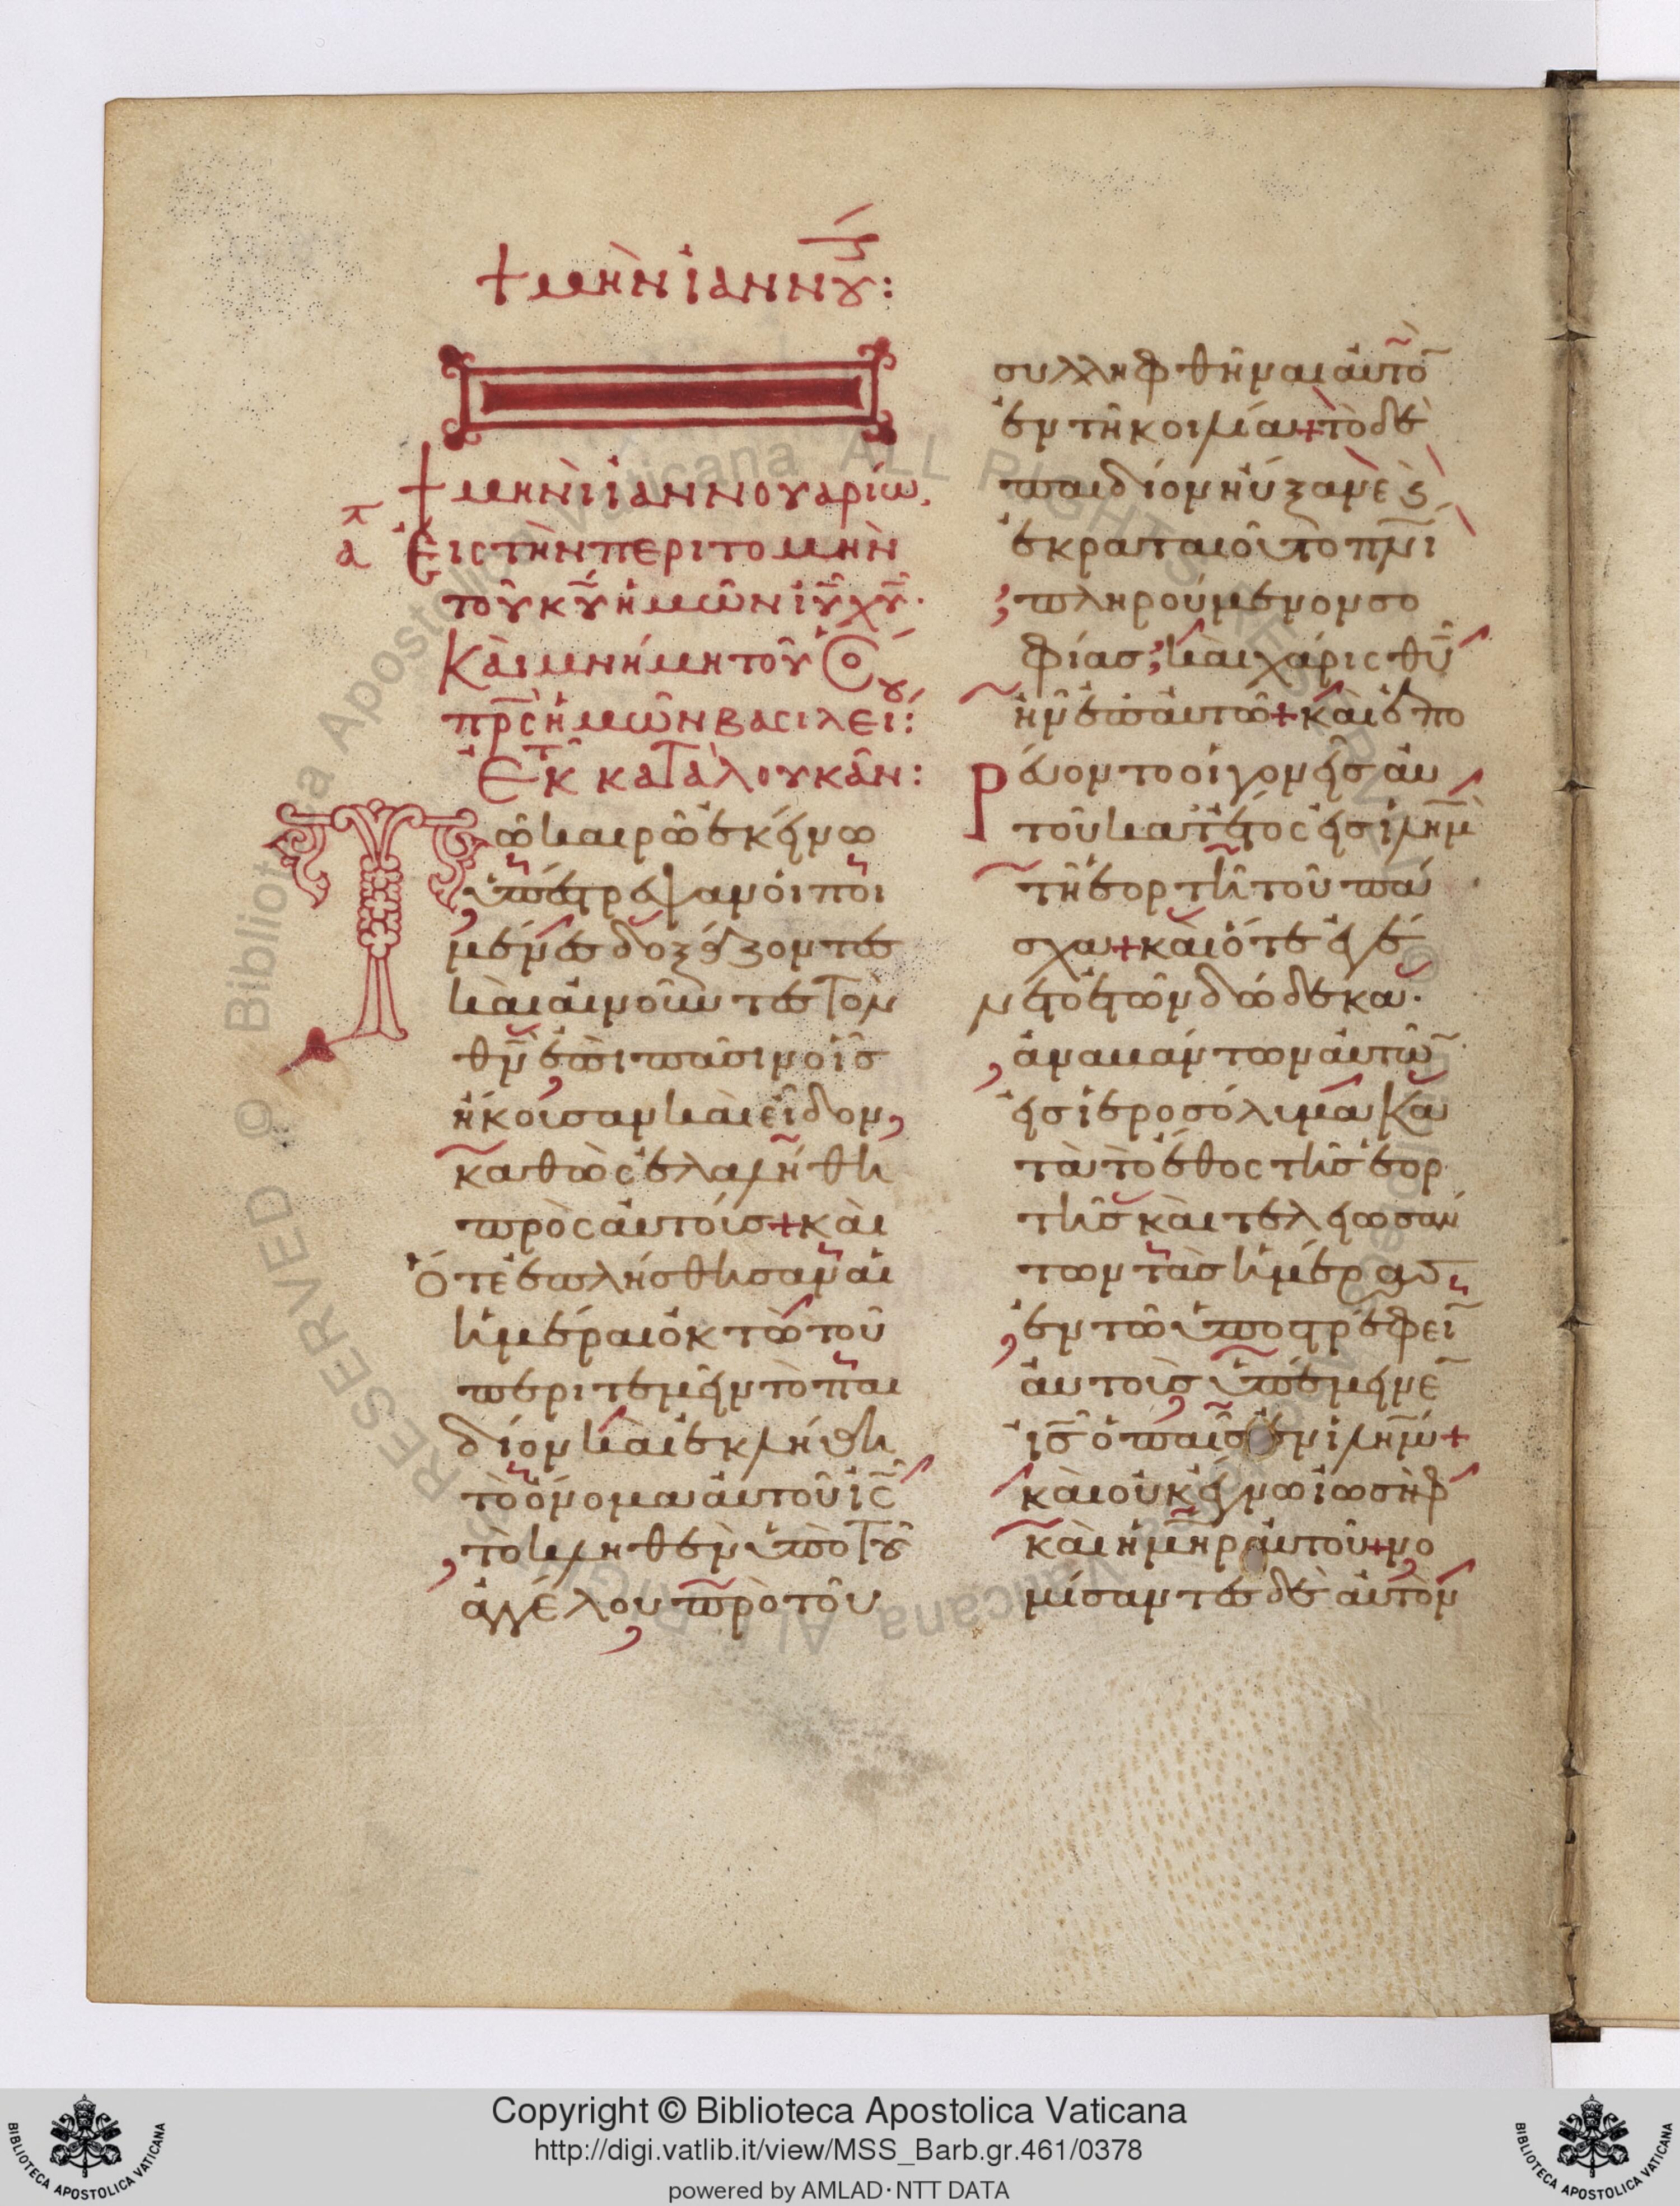 + μηνὶ ἰαννου:
+ μηνὶ ἰαννουαρίω.
α Εἰς τὴν περιτομὴν
τοῦ κυ ἡμῶν ιυ χυ.
Καὶ μνήμη τοῦ
πρς ἡμῶν βασιλεί:
Ἐκ τ κατὰ λουκᾶν:
Τῶ καιρῶ ἐκείνω
ὑπέστρεψαν οἱ ποι
μένες δοξάζοντες
καὶ αἰνοῦντες τὸν
θν ἐπὶ πᾶσιν οἷς
ἤκουσαν καὶ εἶδον,
καθὼς ἐλαλήθη
πρὸς αὐτούς + καὶ
Ὅτε ἐπλήσθησαν αἱ
ἡμέραι ὀκτὼ τοῦ
περιτεμεῖν τὸ παι
δίον καὶ ἐκλήθη
τὸ ὄνομα αὐτοῦ ις
τὸ κληθὲν ὑπὸ τοῦ
ἀγγέλου πρὸ τοῦ
συλληφθῆναι αὐτὸ
ἐν τῆ κοιλία + τὸ δὲ
παιδίον ηὔξανε κ
ἐκραταιοῦτο πνι
πληρούμενον σο
φίας; καὶ χάρις θυ
ἦν ἐπ αὐτῶ + καὶ ἐπο
ρεύοντο οἱ γονεῖς αὐ
τοῦ κατ ἔτος εἰς ιλημ
τῆ ἑορτῆ τοῦ πά
σχα + καὶ ὅτε ἐγέ
νετο ἐτῶν δώδεκα.
ἀναβάντων αὐτῶν
εἰς ἱεροσόλυμα κα
τὰ τὸ ἔθος τῆς ἑορ
τῆς καὶ τελειωσάν
των τὰς ἡμέρας
ἐν τῶ ὑποστρέφειν
αὐτοὺς ὑπέμεινεν
ις ὁ παῖς ἐν ιλημ +
καὶ οὐκ ἔγνω ἰωσὴφ
καὶ ἡ μηρ αὐτοῦ + νο
μίσαντες δὲ αὐτὸν
BIBLIOTECA APOSTOLICA VATICANA
Copyright © Biblioteca Apostolica Vaticana
http://digi.vatlib.it/view/MSS_Barb.gr.461/0378
powered by AMLAD·NTT DATA
BIBLIOTECA APOSTOLICA VATICANA
© Biblioteca Apostolica Vaticana ALL RIGHTS RESERVED